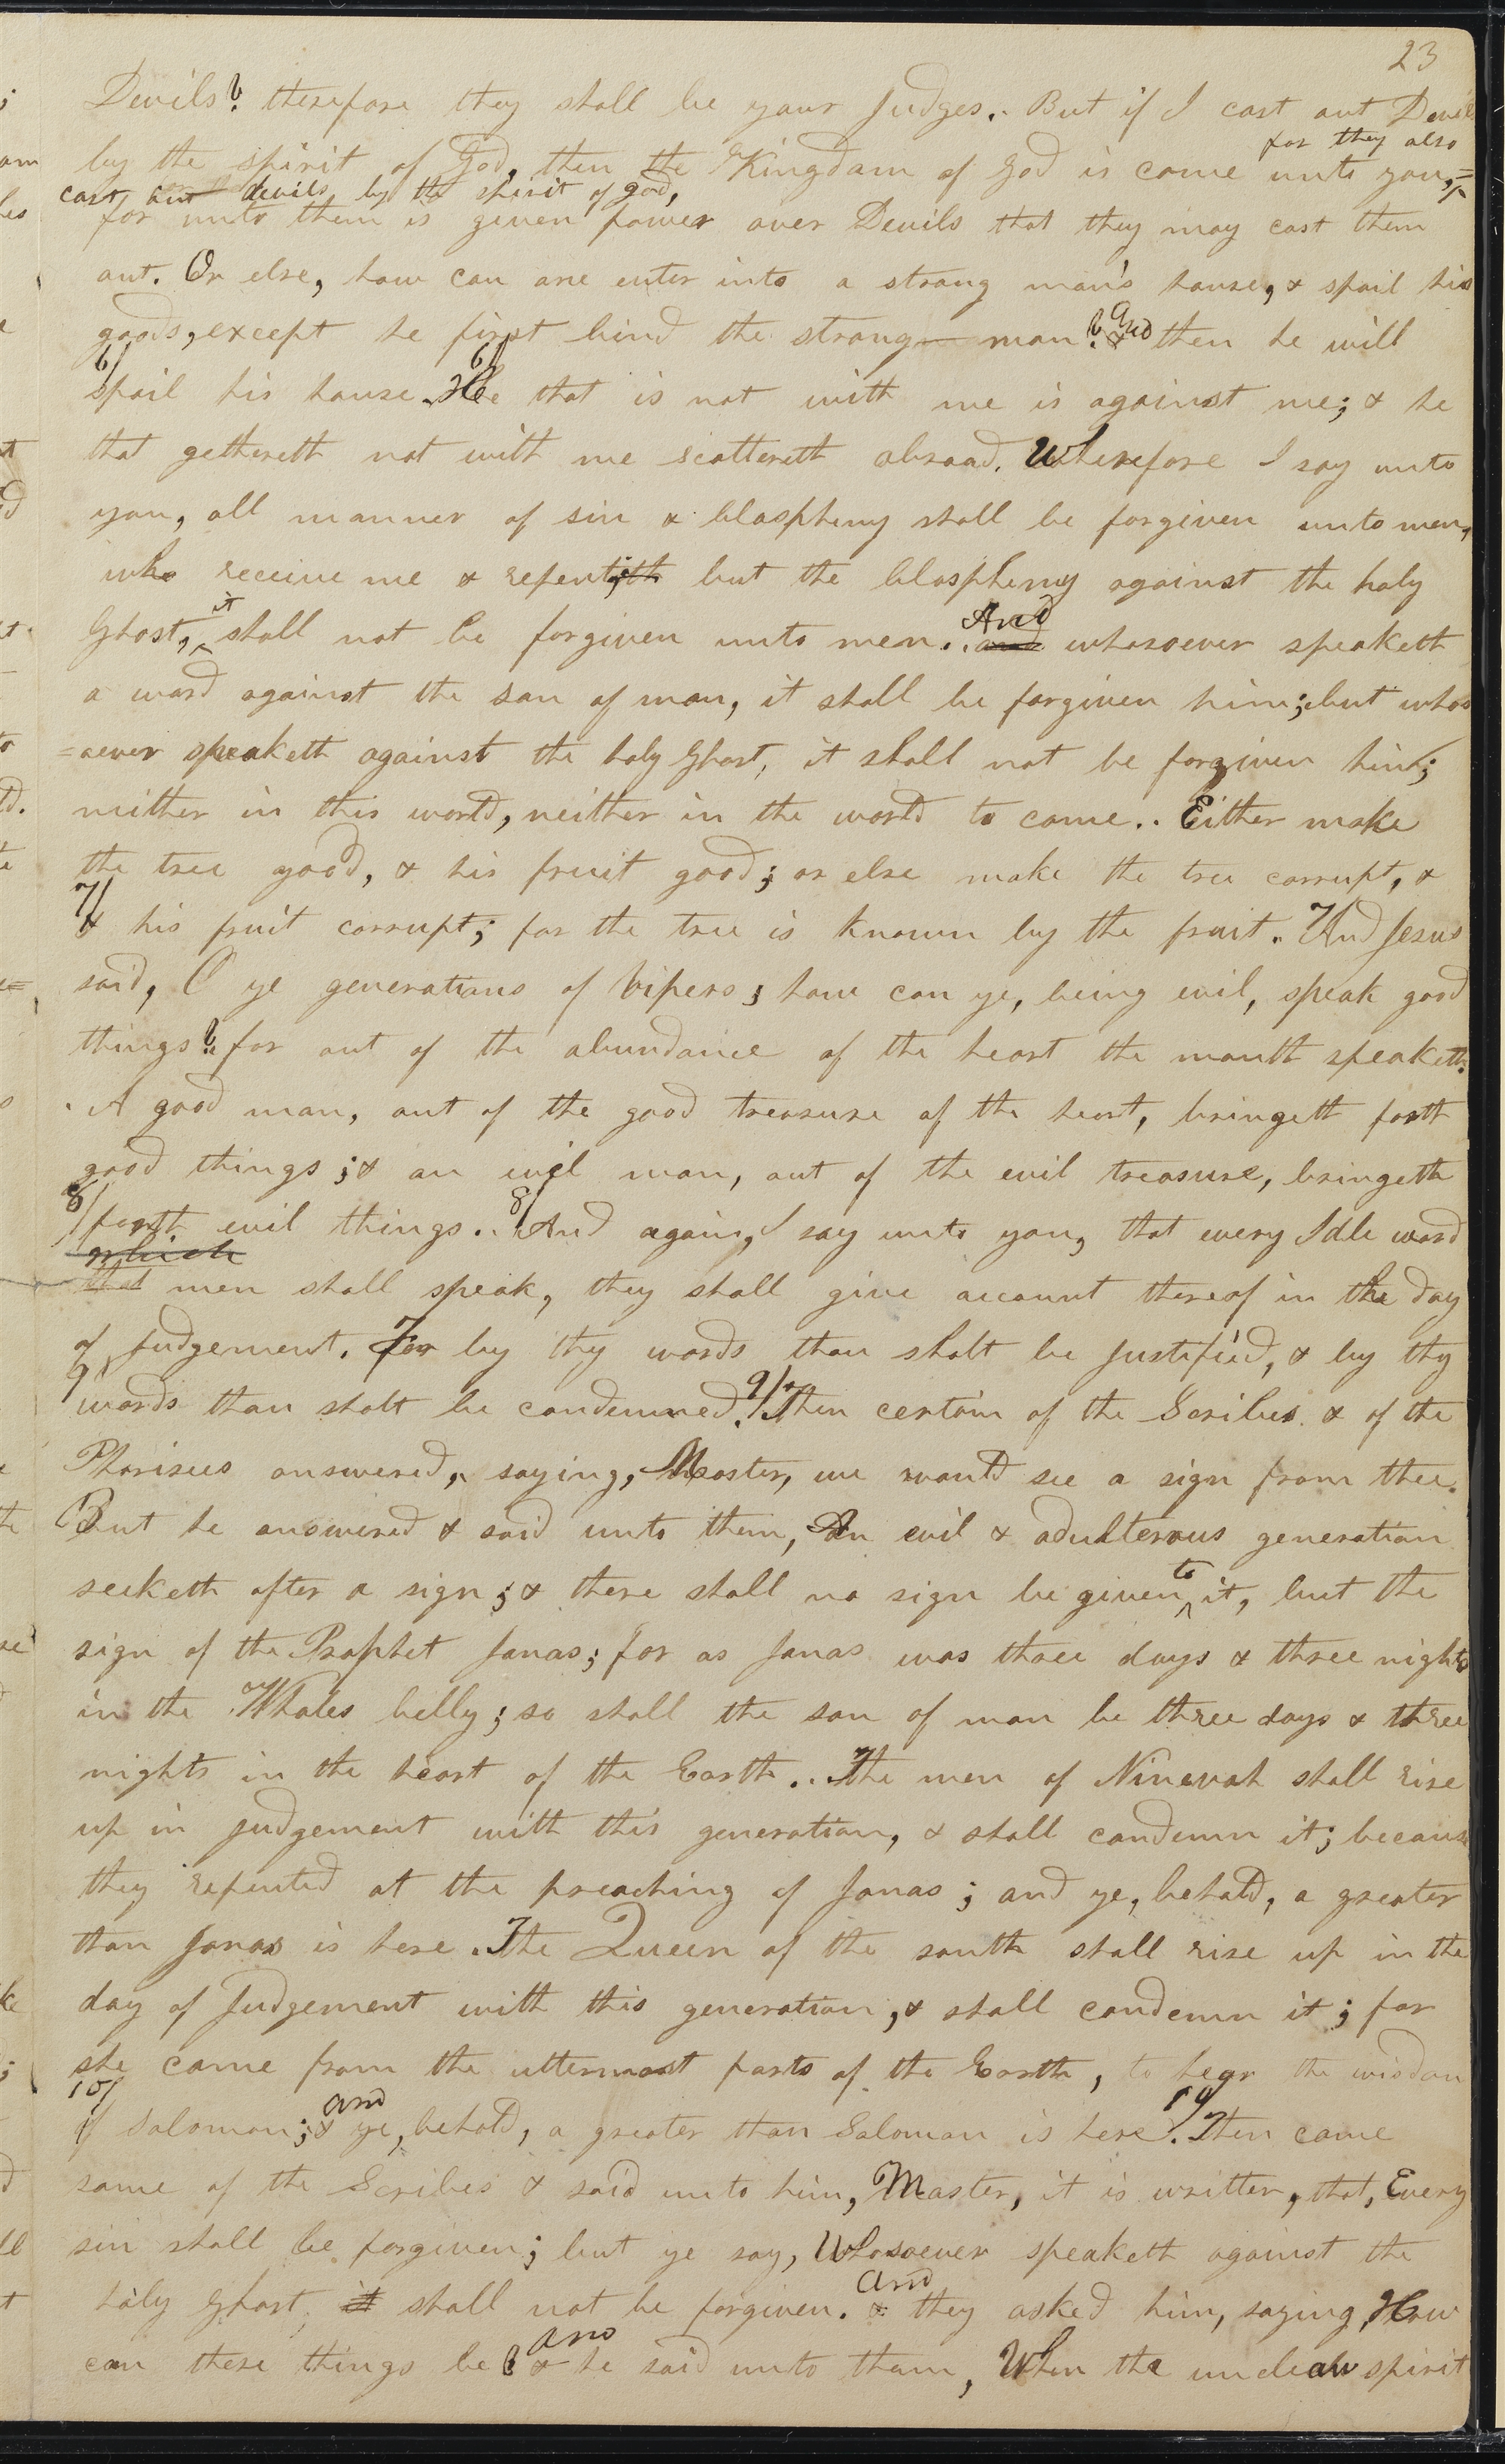 23
Devils? therefore they shall be your Judges. But if I cast out Devils
for they also
by the spirit of God, then the Kingdom of God is come unto you,=
cast out devils by the spirit of god,
for unto them is given power over Devils that they may cast them
out. Or else, how can one enter into a strong man's house, & spoil his
goods, except he first bind the strong- man? & And then he will
6/ spoil his house. 6/ He that is not with me is against me; & he
that gethereth not with me scattereth abroad. Wherefore I say unto
you, all manner of sin & blasphemy shall be forgiven unto men,
who receive me & repenteth; but the blasphemy against the holy
Ghost, ^it shall not be forgiven unto men. and And whosoever speaketh
a word against the son of man, it shall be forgiven him; but whos
=oever speaketh against the holy Ghost, it shall not be forgiven him;
neither in this world, neither in the world to come.. Either make
the tree good, & his fruit good; or else make the tree corrupt, &
7/ & his fruit corrupt; for the tree is known by the fruit. 7/ And Jesus
said, O ye generations of Vipers; how can ye, being evil, speak good
things? for out of the abundance of the heart the mouth speaketh.
A good man, out of the good treasure of the heart, bringeth forth
good things; & an evil man, out of the evil treasure, bringeth
8/ forth evil things.. 8/ And again, I say unto you, that every Idle word
which
that men shall speak, they shall give account thereof in the day
of Judgement. For by thy words thou shalt be Justified, & by thy
9/ words thou shalt be condemned. 9/ Then certain of the Scribes & of the
Pharisees answered, saying, Master, we would see a sign from thee.
But he answered & said unto them, An evil & adulterous generation
seeketh after a sign; & there shall no sign be given ^to it, but the
sign of the Prophet Jonas; for as Jonas was three days & three nights
in the Whales belly; so shall the son of man be three days & three
nights in the heart of the Earth.. The men of Ninevah shall rise
up in Judgement with this generation, & shall condemn it; because
they repented at the preaching of Jonas; and ye, behold, a greater
than Jonas is here. The Queen of the south shall rise up in the
day of Judgement with this generation, & shall condemn it; for
she came from the uttermost parts of the Earth, to hear the wisdom
10/ of Solomon; & and ye, behold, a greater than Solomon is here. 10/ Then came
some of the Scribes & said unto him, Master, it is written, that, Every
sin shall be forgiven; but ye say, Whosoever speaketh against the
holy Ghost, it shall not be forgiven. & and they asked him, saying, How
can these things be? & and he said unto them, When the unclean spirit